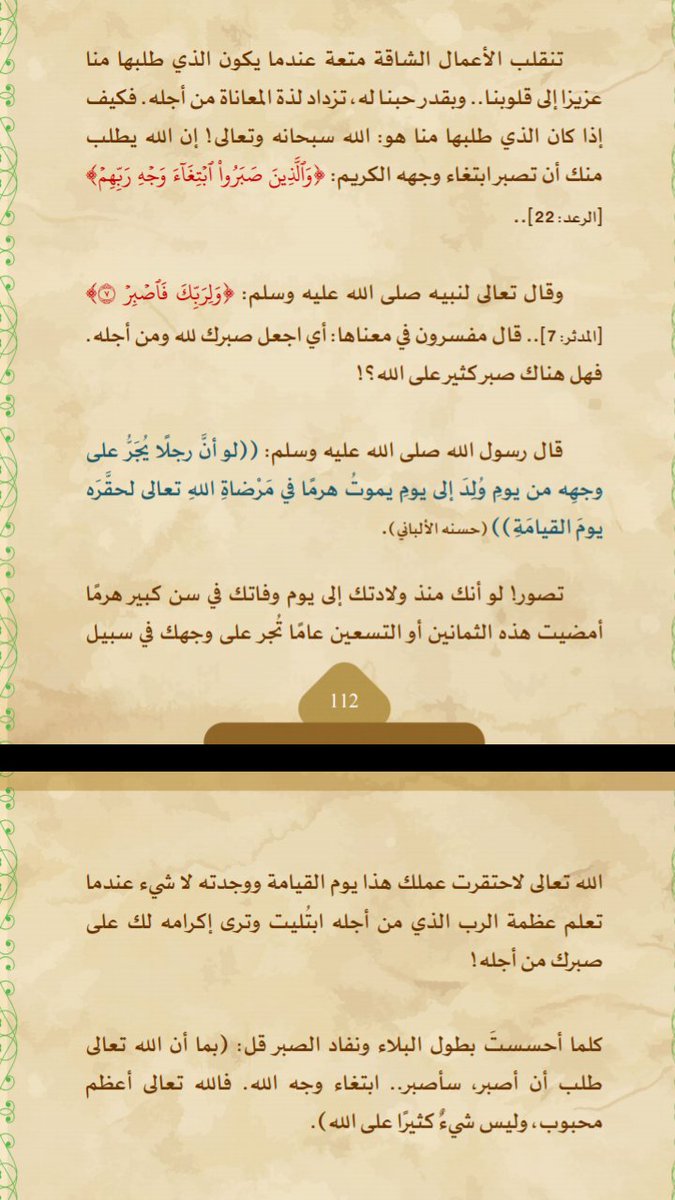 تنقلب الأعمال الشاقة متعة عندما يكون الذي طلبها منا
عزيزا إلى قلوبنا.. وبقدر حبنا له، تزداد لذة المعاناة من أجله. فكيف
إذا كان الذي طلبها منا هو: الله سبحانه وتعالى! إن الله يطلب
منك أن تصبر ابتغاء وجهه الكريم: ﴿وَٱلَّذِينَ صَبَرُواْ ٱبْتِغَآءَ وَجْهِ رَبِّهِمْ﴾
[الرعد: 22]..
وقال تعالى لنبيه صلى الله عليه وسلم: ﴿وَلِرَبِّكَ فَٱصْبِرْ ٧﴾
[المدثر: 7].. قال مفسرون في معناها: أي اجعل صبرك لله ومن أجله.
فهل هناك صبر كثير على الله؟!
قال رسول الله صلى الله عليه وسلم: ((لو أنَّ رجلًا يُجَرُّ على
وجهِه من يومِ وُلِدَ إلى يومِ يموتُ هرمًا في مَرْضاةِ اللهِ تعالى لحقَّرَه
يومَ القيامَةِ)) (حسنه الألباني).
تصور! لو أنك منذ ولادتك إلى يوم وفاتك في سن كبير هرمًا
أمضيت هذه الثمانين أو التسعين عامًا تُجر على وجهك في سبيل
112
الله تعالى لاحتقرت عملك هذا يوم القيامة ووجدته لا شيء عندما
تعلم عظمة الرب الذي من أجله ابتُليت وترى إكرامه لك على
صبرك من أجله!
كلما أحسستَ بطول البلاء ونفاد الصبر قل: (بما أن الله تعالى
طلب أن أصبر، سأصبر.. ابتغاء وجه الله. فالله تعالى أعظم
محبوب، وليس شيءٌ كثيرًا على الله).